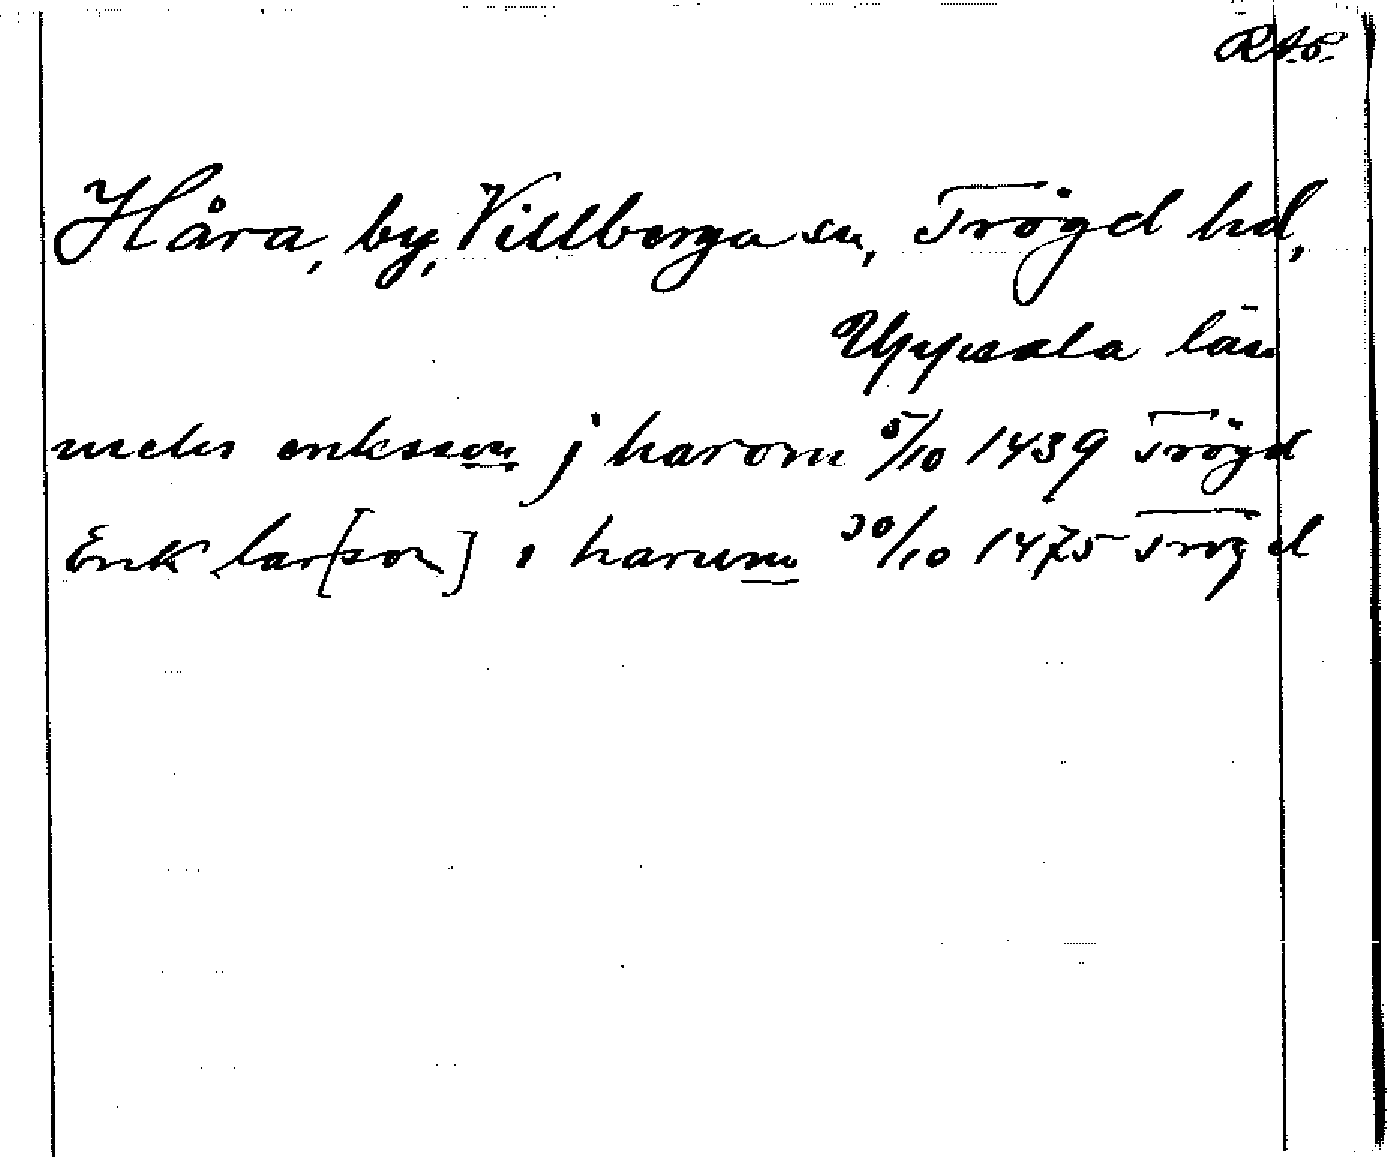 RAp.
Håra, by, Villberga sn, Trögd hd,
Uppsala län
niels eriksson j harom 5/10 1439 Trögd
Erik lar[son] i harum 30/10 1475 Trögd